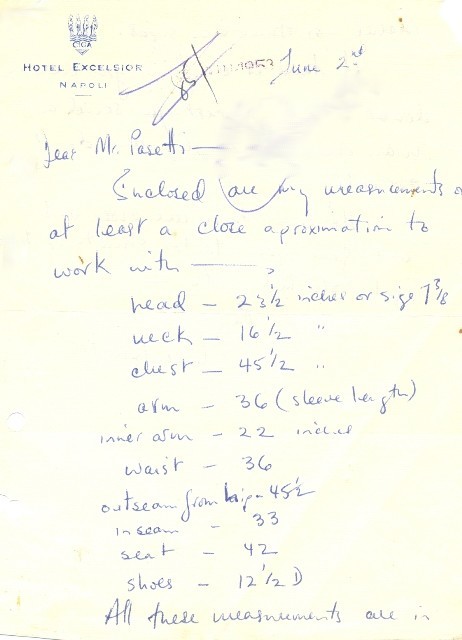 CIGA
HOTEL EXCELSIOR
NAPOLI
1953
June 2nd
Dear Mr. Pasetti —
Enclosed are my measurements or
at least a close aproximation to
work with —
head — 23 1/2 inches or size 7 3/8
neck — 16 1/2 "
chest — 45 1/2 "
arm — 36 (sleeve length)
inner arm — 22 inches
waist — 36
outseam from hip — 45 1/2
inseam — 33
seat — 42
shoes — 12 1/2 D
All these measurements are in